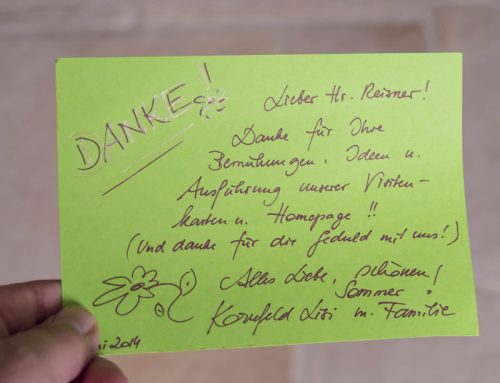 DANKE!
Lieber Hr. Reisner!
Danke für Ihre
Bemühungen, Ideen u.
Ausführung unserer Visiten-
karten u. Homepage !!
(Und danke für die Geduld mit uns!)
Alles Liebe, schönen
Sommer!
Lisi m. Familie
2014